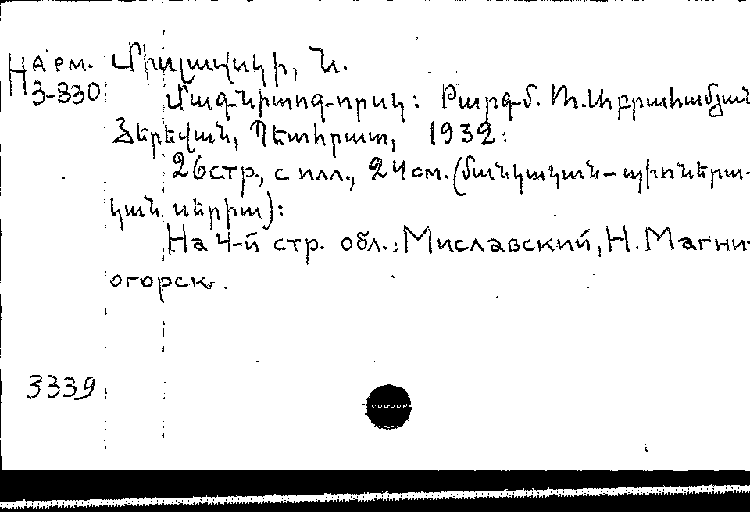 На рм.
3-330
Միսլավսկի, Ն.
Մագնիտոգորսկ: Թարգմ. Ռ. Աբրահամյան
Յերեվան, Պետհրատ, 1932:
26 стр., с илл., 24 см. (մանկական-պիոներա-
կան սերիա):
На 4-й стр. обл.: Миславский, Н. Магни-
огорск.
3339